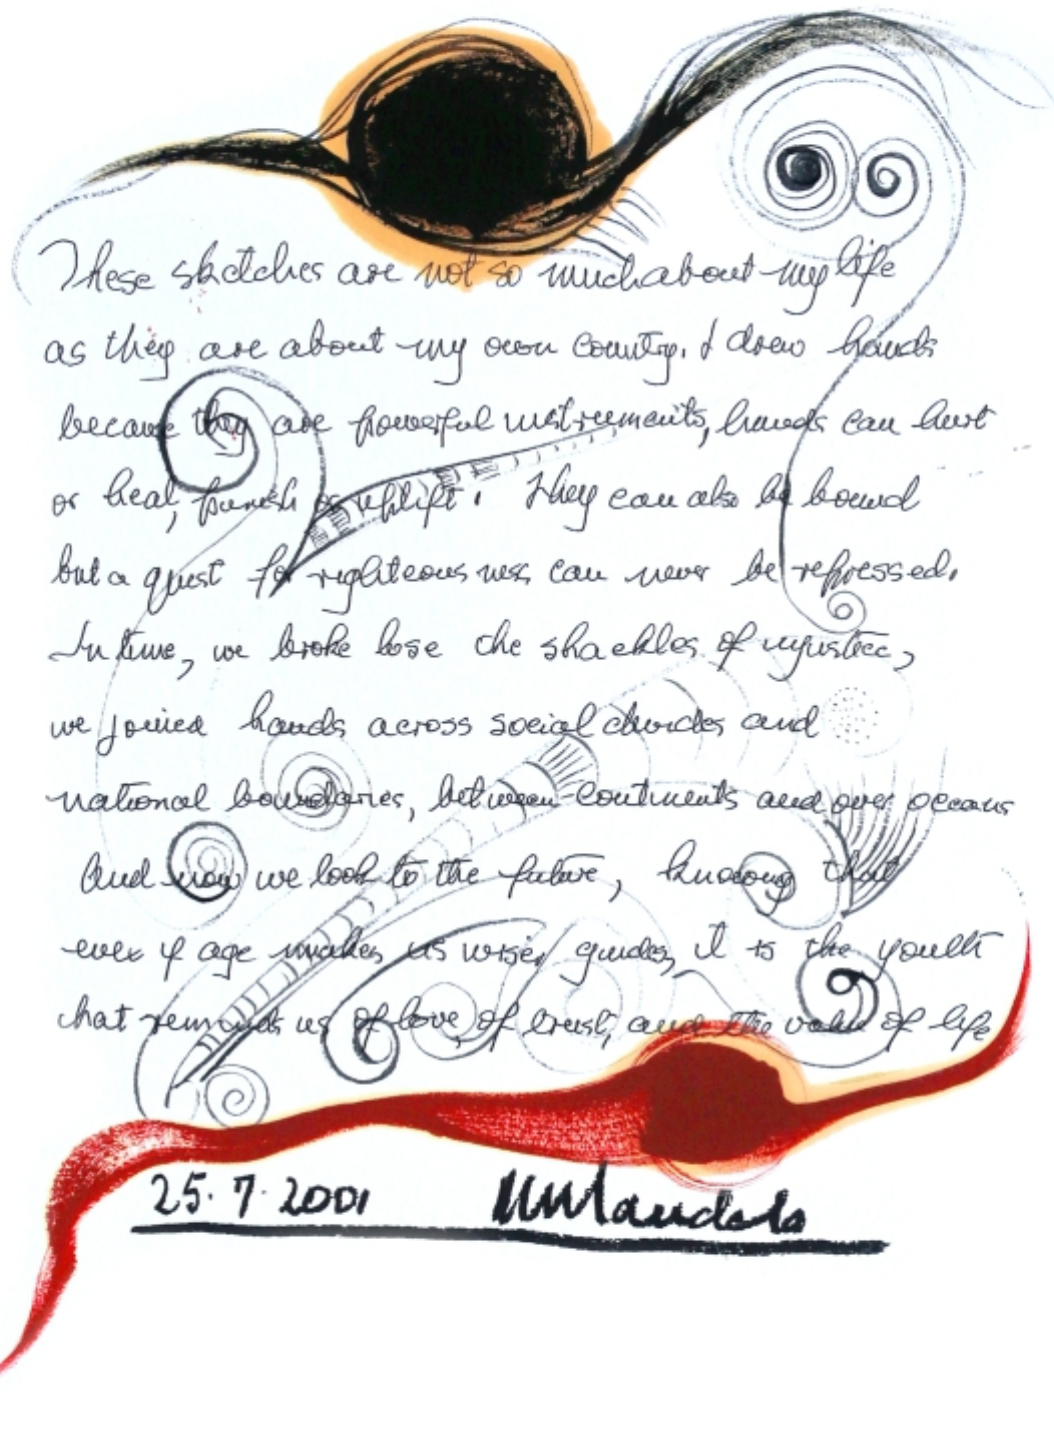 These sketches are not so much about my life
as they are about my own country. I drew hands
because they are powerful instruments, hands can hurt
or heal, punish or uplift. They can also be bound
but a quest for righteousness can never be repressed.
In time, we broke lose the shackles of injustice,
we joined hands across social divides and
national boundaries, between continents and over oceans
And now we look to the future, knowing that
even if age makes us wiser guides, it is the youth
that reminds us of love, of trust, and the value of life
25.7.2001 Mandela